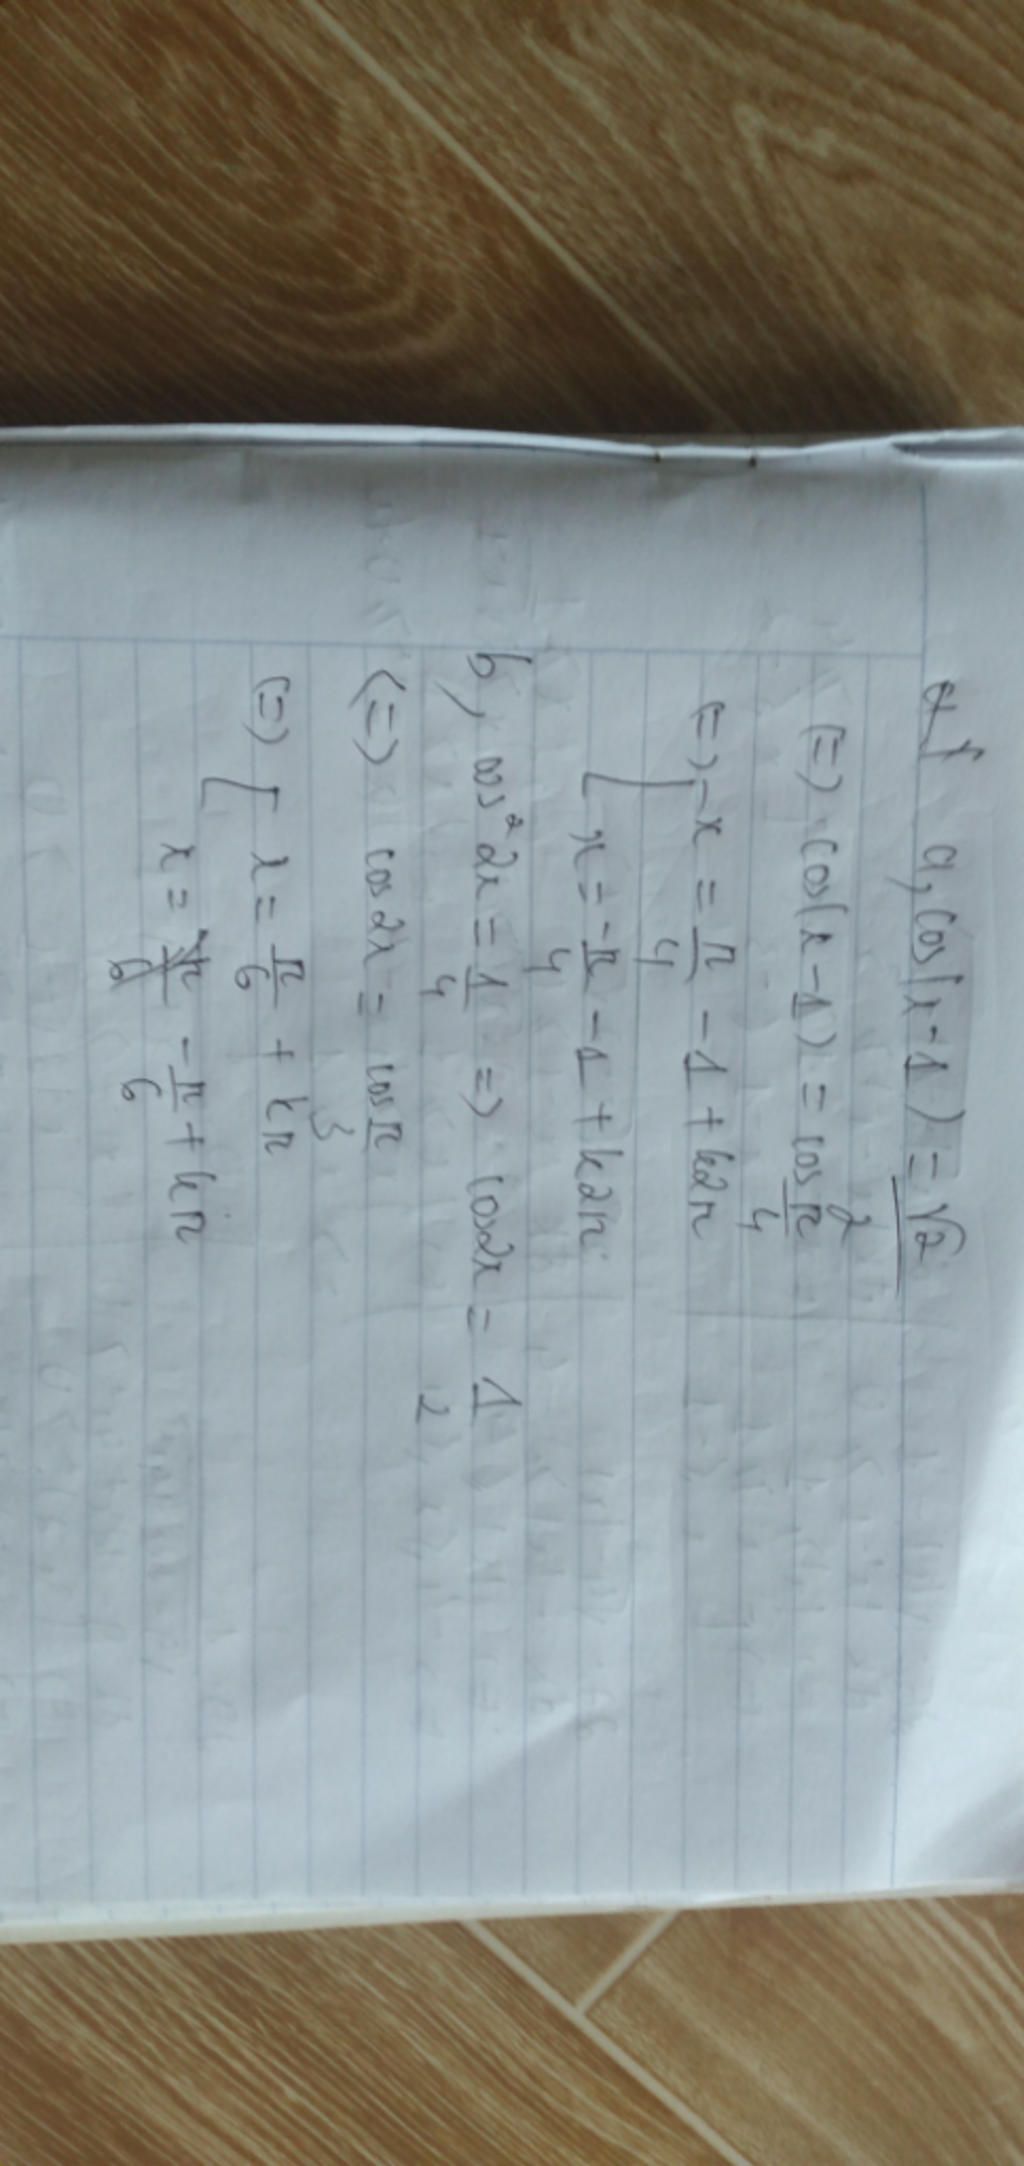 a, cos(x-1) = √2/2
(=) cos(x-1) = cos π/4
(=) [ x = π/4 - 1 + k2π
x = -π/4 - 1 + k2π
b, cos² 2x = 1/4 => cos2x = 1/2
(=) cos2x = cos π/3
(=) [ x = π/6 + kπ
x = -π/6 + kπ